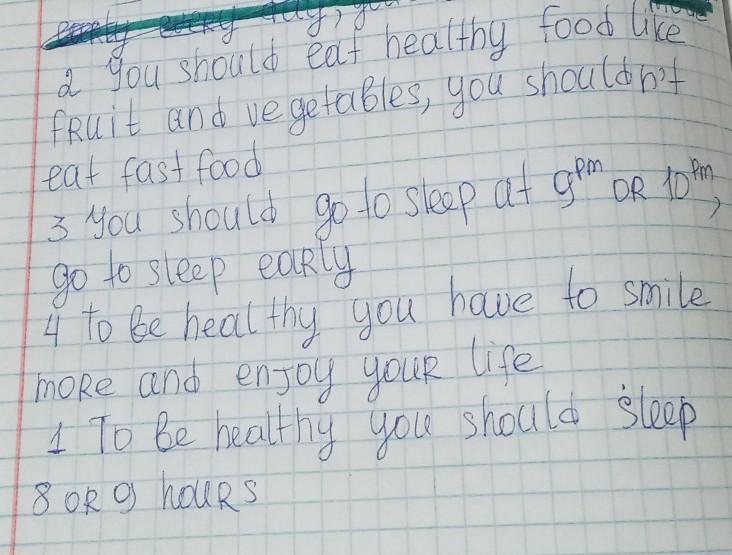 2 You should eat healthy food like
fruit and vegetables, you shouldn't
eat fast food
3 You should go to sleep at 9pm OR 10pm,
go to sleep early
4 To be healthy you have to smile
more and enjoy your life
1 To be healthy you should sleep
8 OR 9 hours